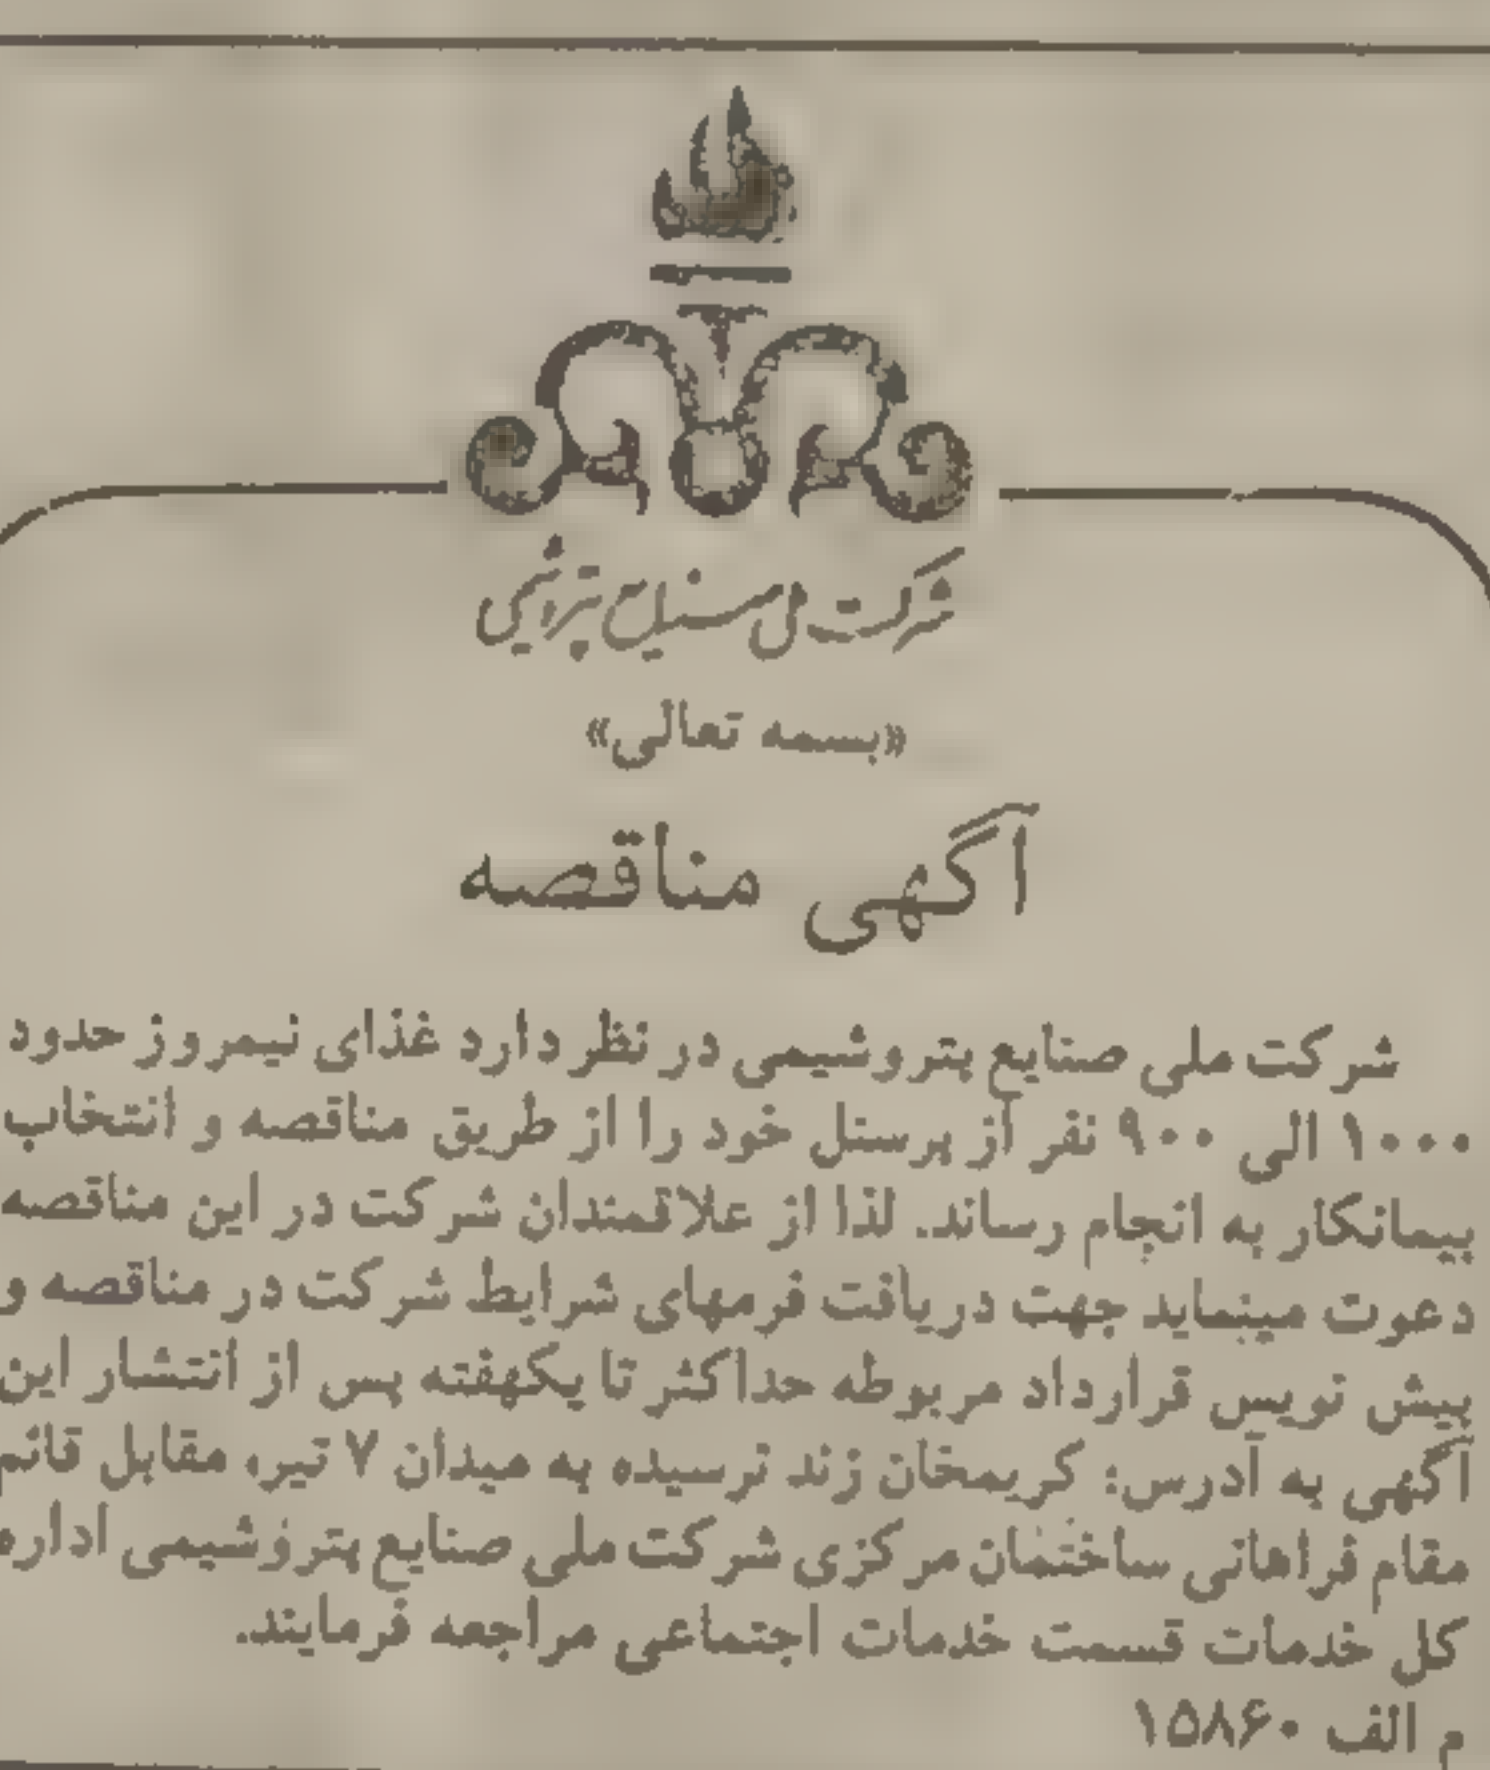 شرکت ملی صنایع پتروشیمی
«بسمه تعالی»
آگهی مناقصه
شرکت ملی صنایع پتروشیمی در نظر دارد غذای نیمروز حدود
۱۰۰۰ الی ۹۰۰ نفر از پرسنل خود را از طریق مناقصه و انتخاب
پیمانکار به انجام رساند. لذا از علاقمندان شرکت در این مناقصه
دعوت مینماید جهت دریافت فرمهای شرایط شرکت در مناقصه و
پیش نویس قرارداد مربوطه حداکثر تا یکهفته پس از انتشار این
آگهی به آدرس: کریمخان زند نرسیده به میدان ۷ تیر، مقابل قائم
مقام فراهانی ساختمان مرکزی شرکت ملی صنایع پتروشیمی اداره
کل خدمات قسمت خدمات اجتماعی مراجعه فرمایند.
م الف ۱۵۸۶۰